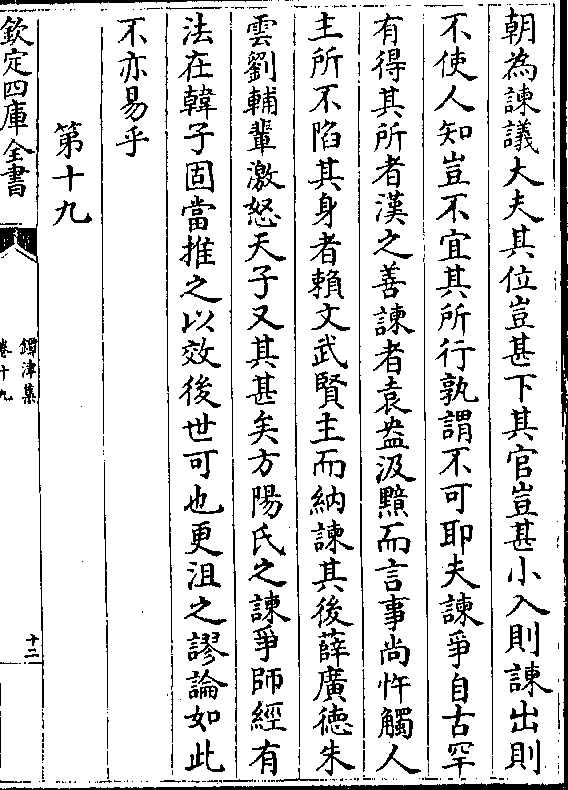 朝為諫議大夫其位豈甚下其官豈甚小入則諫出則
不使人知豈不宜其所行孰謂不可耶夫諫爭自古罕
有得其所者漢之善諫者袁盎汲黯而言事尚忤觸人
主所不陷其身者賴文武賢主而納諫其後薛廣徳朱
雲劉輔輩激怒天子又其甚矣方陽氏之諫爭師經有
法在韓子固當推之以效後世可也更沮之謬論如此
不亦易乎
第十九
欽定四庫全書
鐔津集
卷十九
十二